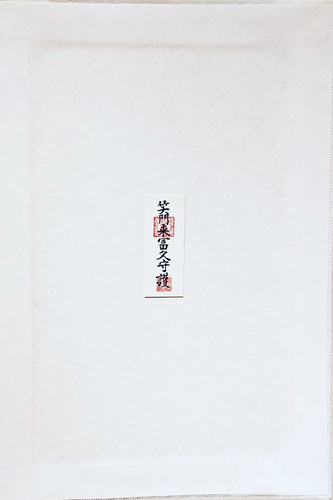 笑門来富久守護